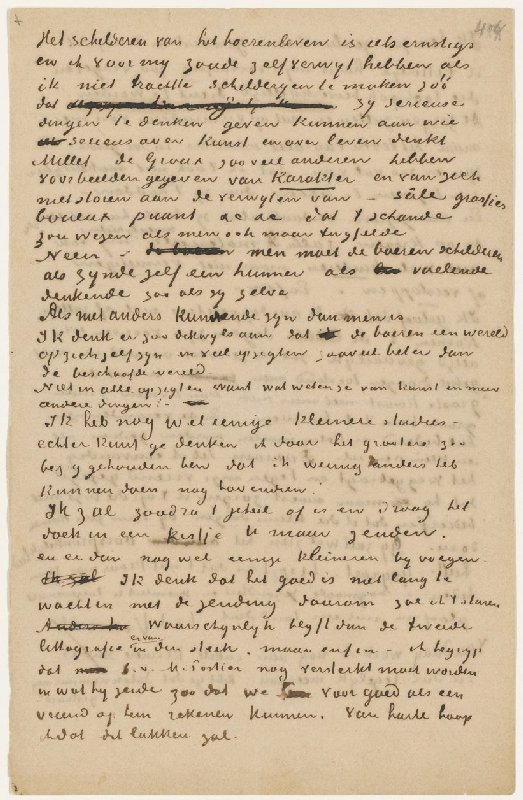 Het schilderen van het boerenleven is iets ernstigs
en ik voor my zoude zelfverwyt hebben als
ik niet trachtte schilderyen te maken zóó
dat zy serieuse
dingen te denken geven kunnen aan wie
serieus over kunst en over leven denkt
Millet, de Groux, zoo veel anderen hebben
voorbeelden gegeven van Karakter en van zich
niet storen aan de verwyten van – sâle, grossier
boueux puant &c &c dat 't schande
zou wezen als men ook maar twyfelde
Neen – men moet de boeren schilderen
als zynde zelf een hunner als voelende
denkende zoo als zy zelve
Als niet anders kunnende zyn dan men is
Ik denk er zoo dikwyls aan dat de boeren een wereld
op zich zelf zyn in veel opzigten zooveel beter dan
de beschaafde wereld
Niet in alle opzigten want wat weten ze van kunst en meer
andere dingen? –
Ik heb nog wel eenige kleinere studies –
echter kunt ge denken ik door het grootere zoo
bezig gehouden ben dat ik weinig anders heb
kunnen doen, nog bovendien.
Ik zal zoodra 't geheel af is en droog het
doek in een kistje U maar zenden.
en er dan nog wel eenige kleineren by voegen
Ik denk dat het goed is niet lang te
wachten met de zending daarom zal ik 't sturen.
Waarschynlyk blyft dan de tweede
lithografie er van in den steek. maar enfin – ik begryp
dat b.v. M. Portier nog versterkt moet worden
in wat hy zeide zoo dat we voor goed als een
vriend op hem rekenen kunnen. Van harte hoop
ik dat dit lukken zal.